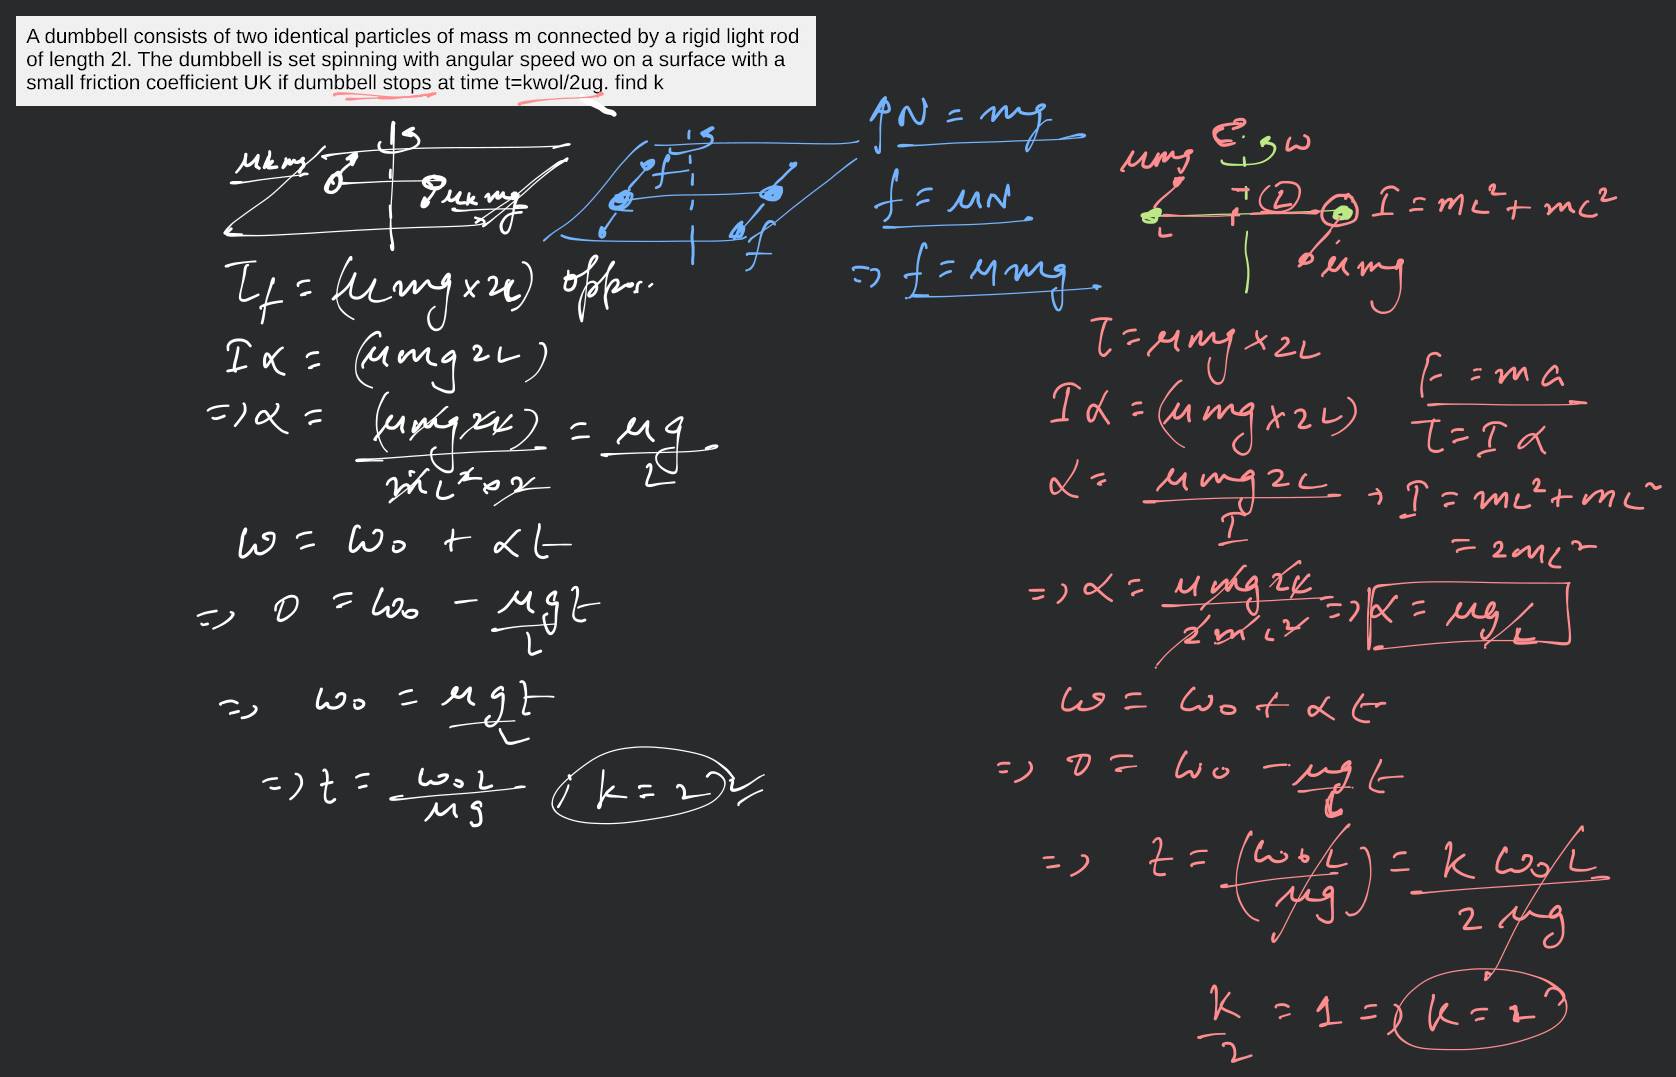 A dumbbell consists of two identical particles of mass m connected by a rigid light rod
of length 2l. The dumbbell is set spinning with angular speed wo on a surface with a
small friction coefficient UK if dumbbell stops at time t=kwol/2ug. find k
μk mg
μk mg
τf = (μmg × 2L) oppos.
Iα = (μmg 2L)
=> α = (μmg 2L) / mL² × 2 = μg / L
ω = ω₀ + αt
=> 0 = ω₀ - μg t / L
=> ω₀ = μg t / L
=> t = ω₀L / μg , k = 2
f
f
N = mg
f = μN
=> f = μmg
ω
μmg
L
L
I = mL² + mL²
μmg
τ = μmg × 2L
F = ma
Iα = (μmg × 2L)
τ = Iα
α = μmg 2L / I → I = mL² + mL²
= 2mL²
=> α = μmg 2L / 2mL² => α = μg/L
ω = ω₀ + αt
=> 0 = ω₀ - μg t / L
=> t = (ω₀L / μg) = k ω₀L / 2μg
k / 2 = 1 => k = 2